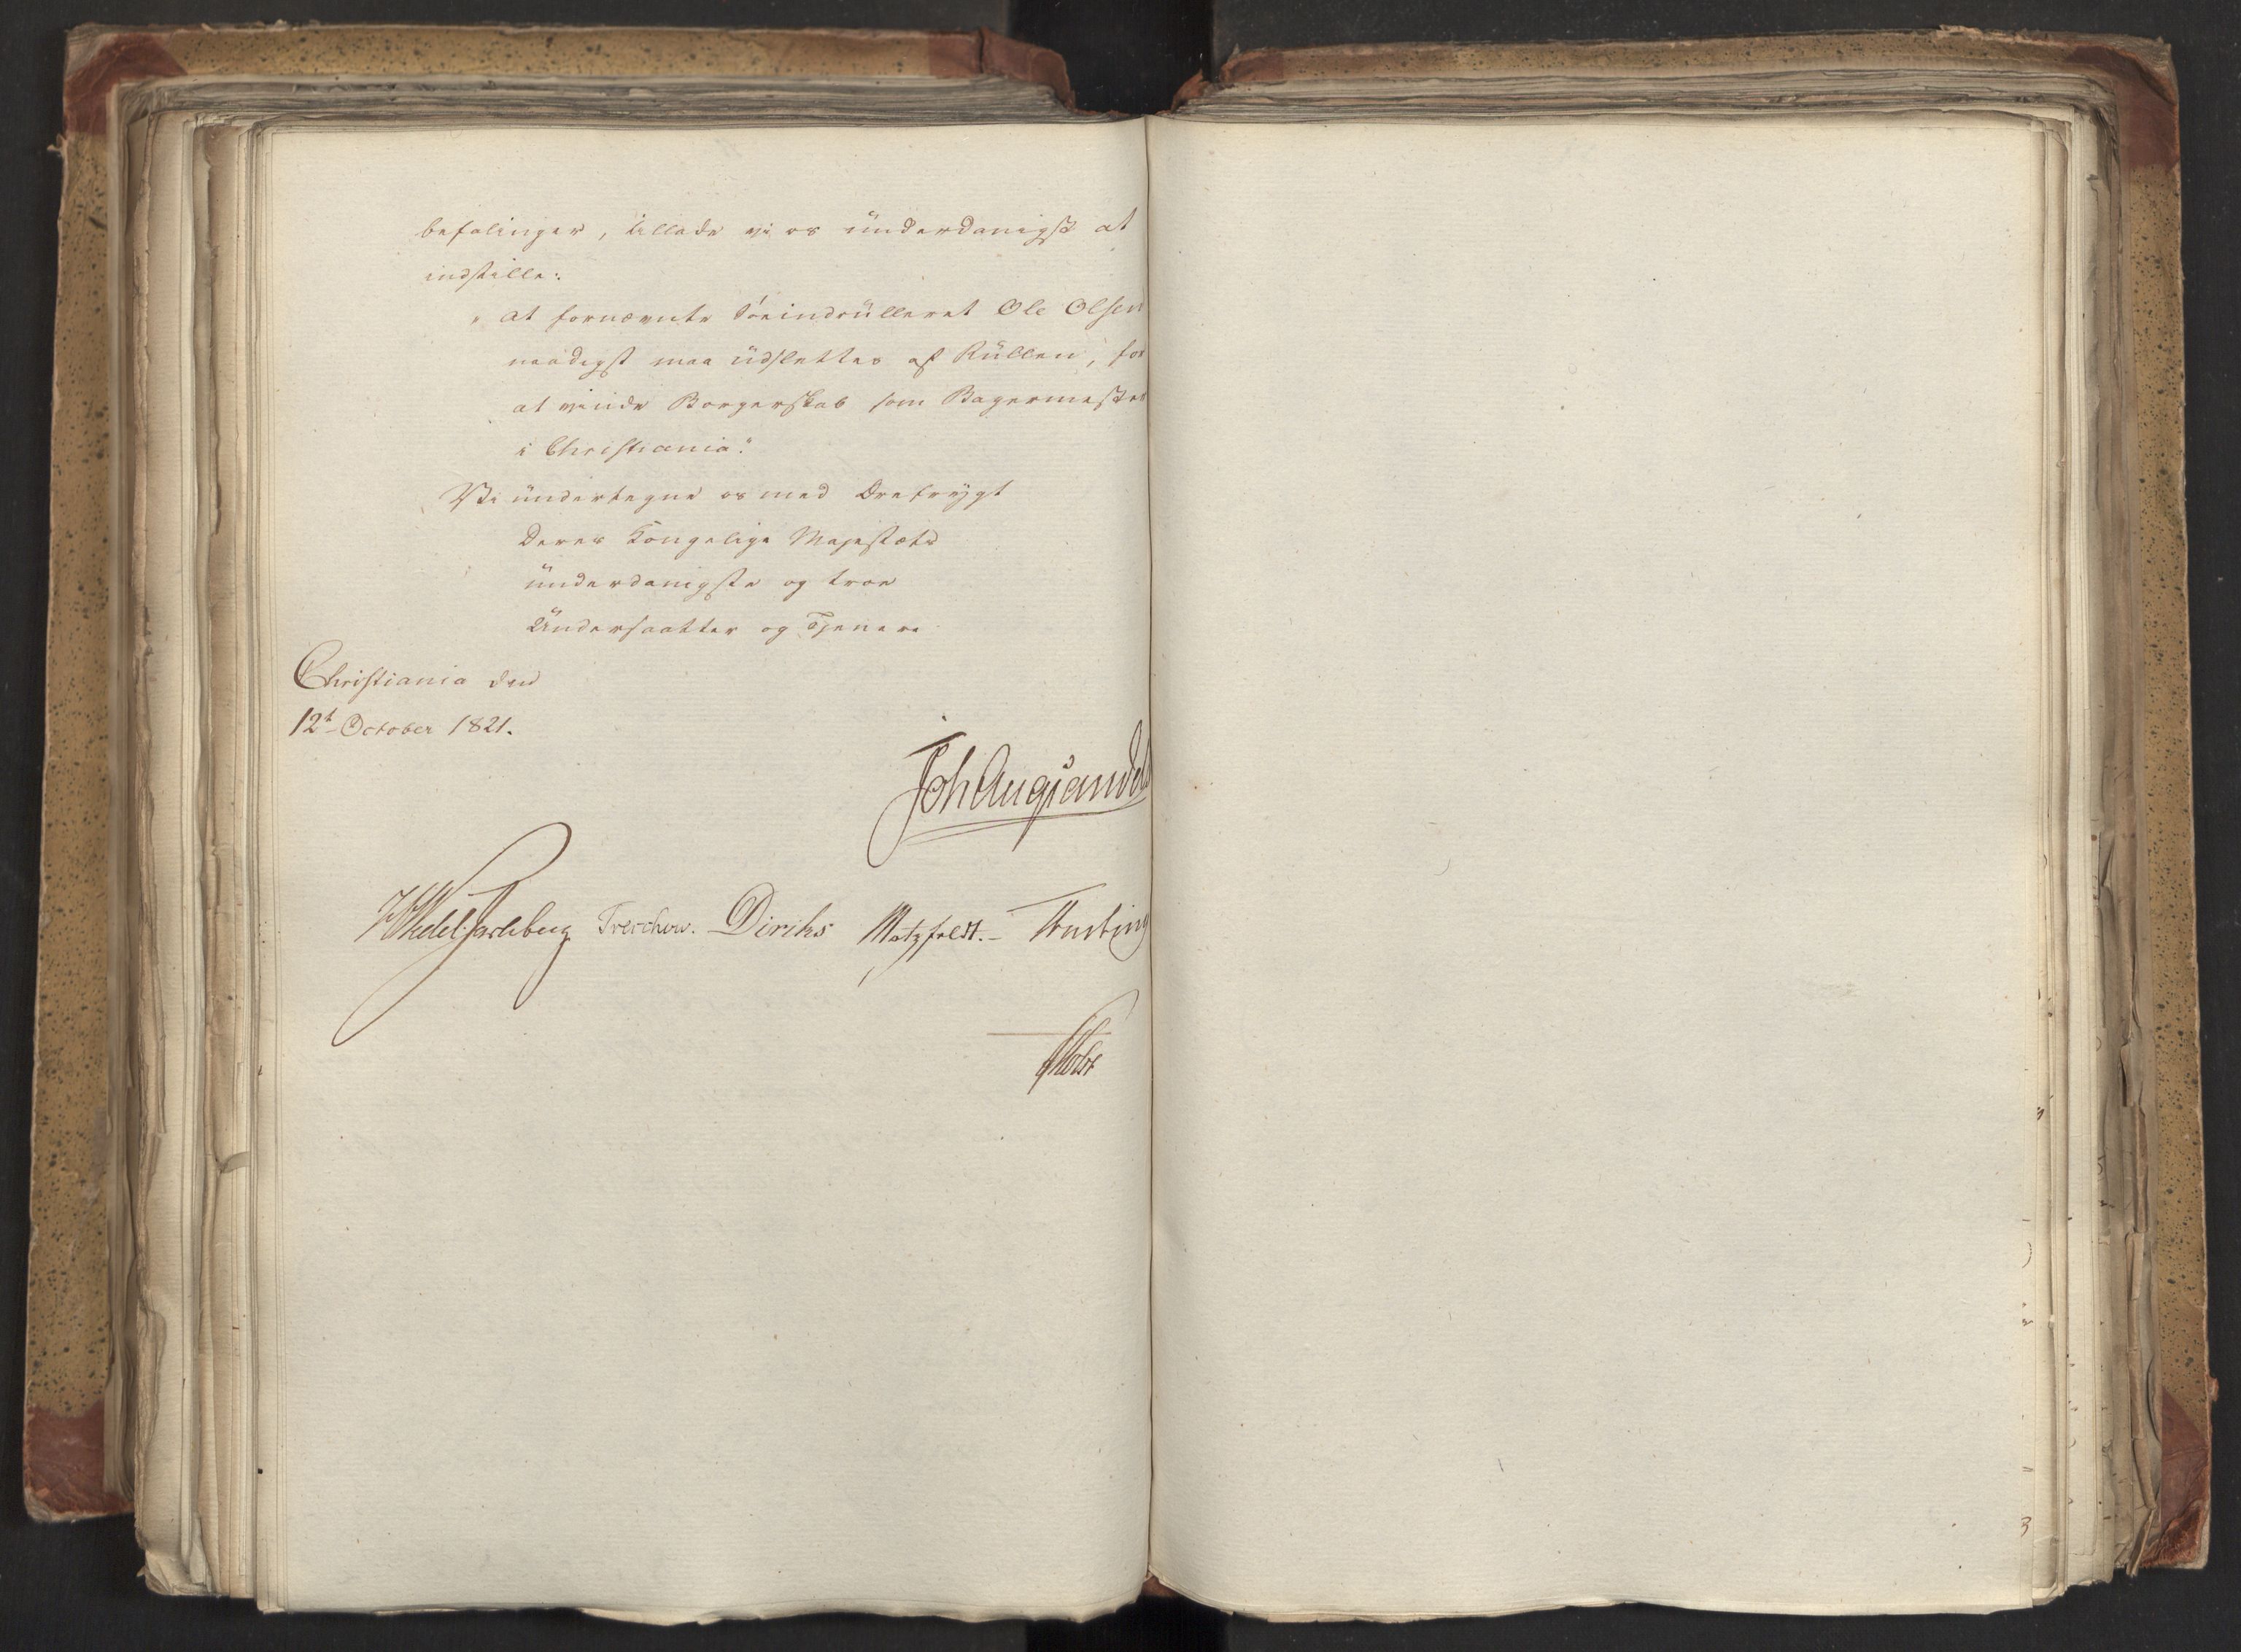 befalinger, tillade vi os ünderdanigst at
indstille:
" at fornævnte Søeindrülleret Ole Olsen
naadigst maa üdslettes af Rüllen, for
at vinde Borgerskab som Bagermester
i Christiania."
Vi ündertegne os med Ærefrygt
Deres Kongelige Majestæts
ünderdanigste og troe
Ündersaatter og Tjenere
Christiania den
12t October 1821.
Joh Aug Sandels
HWedel Jarlsberg Treschow. Diriks Motzfeldt.- Fasting
Holst